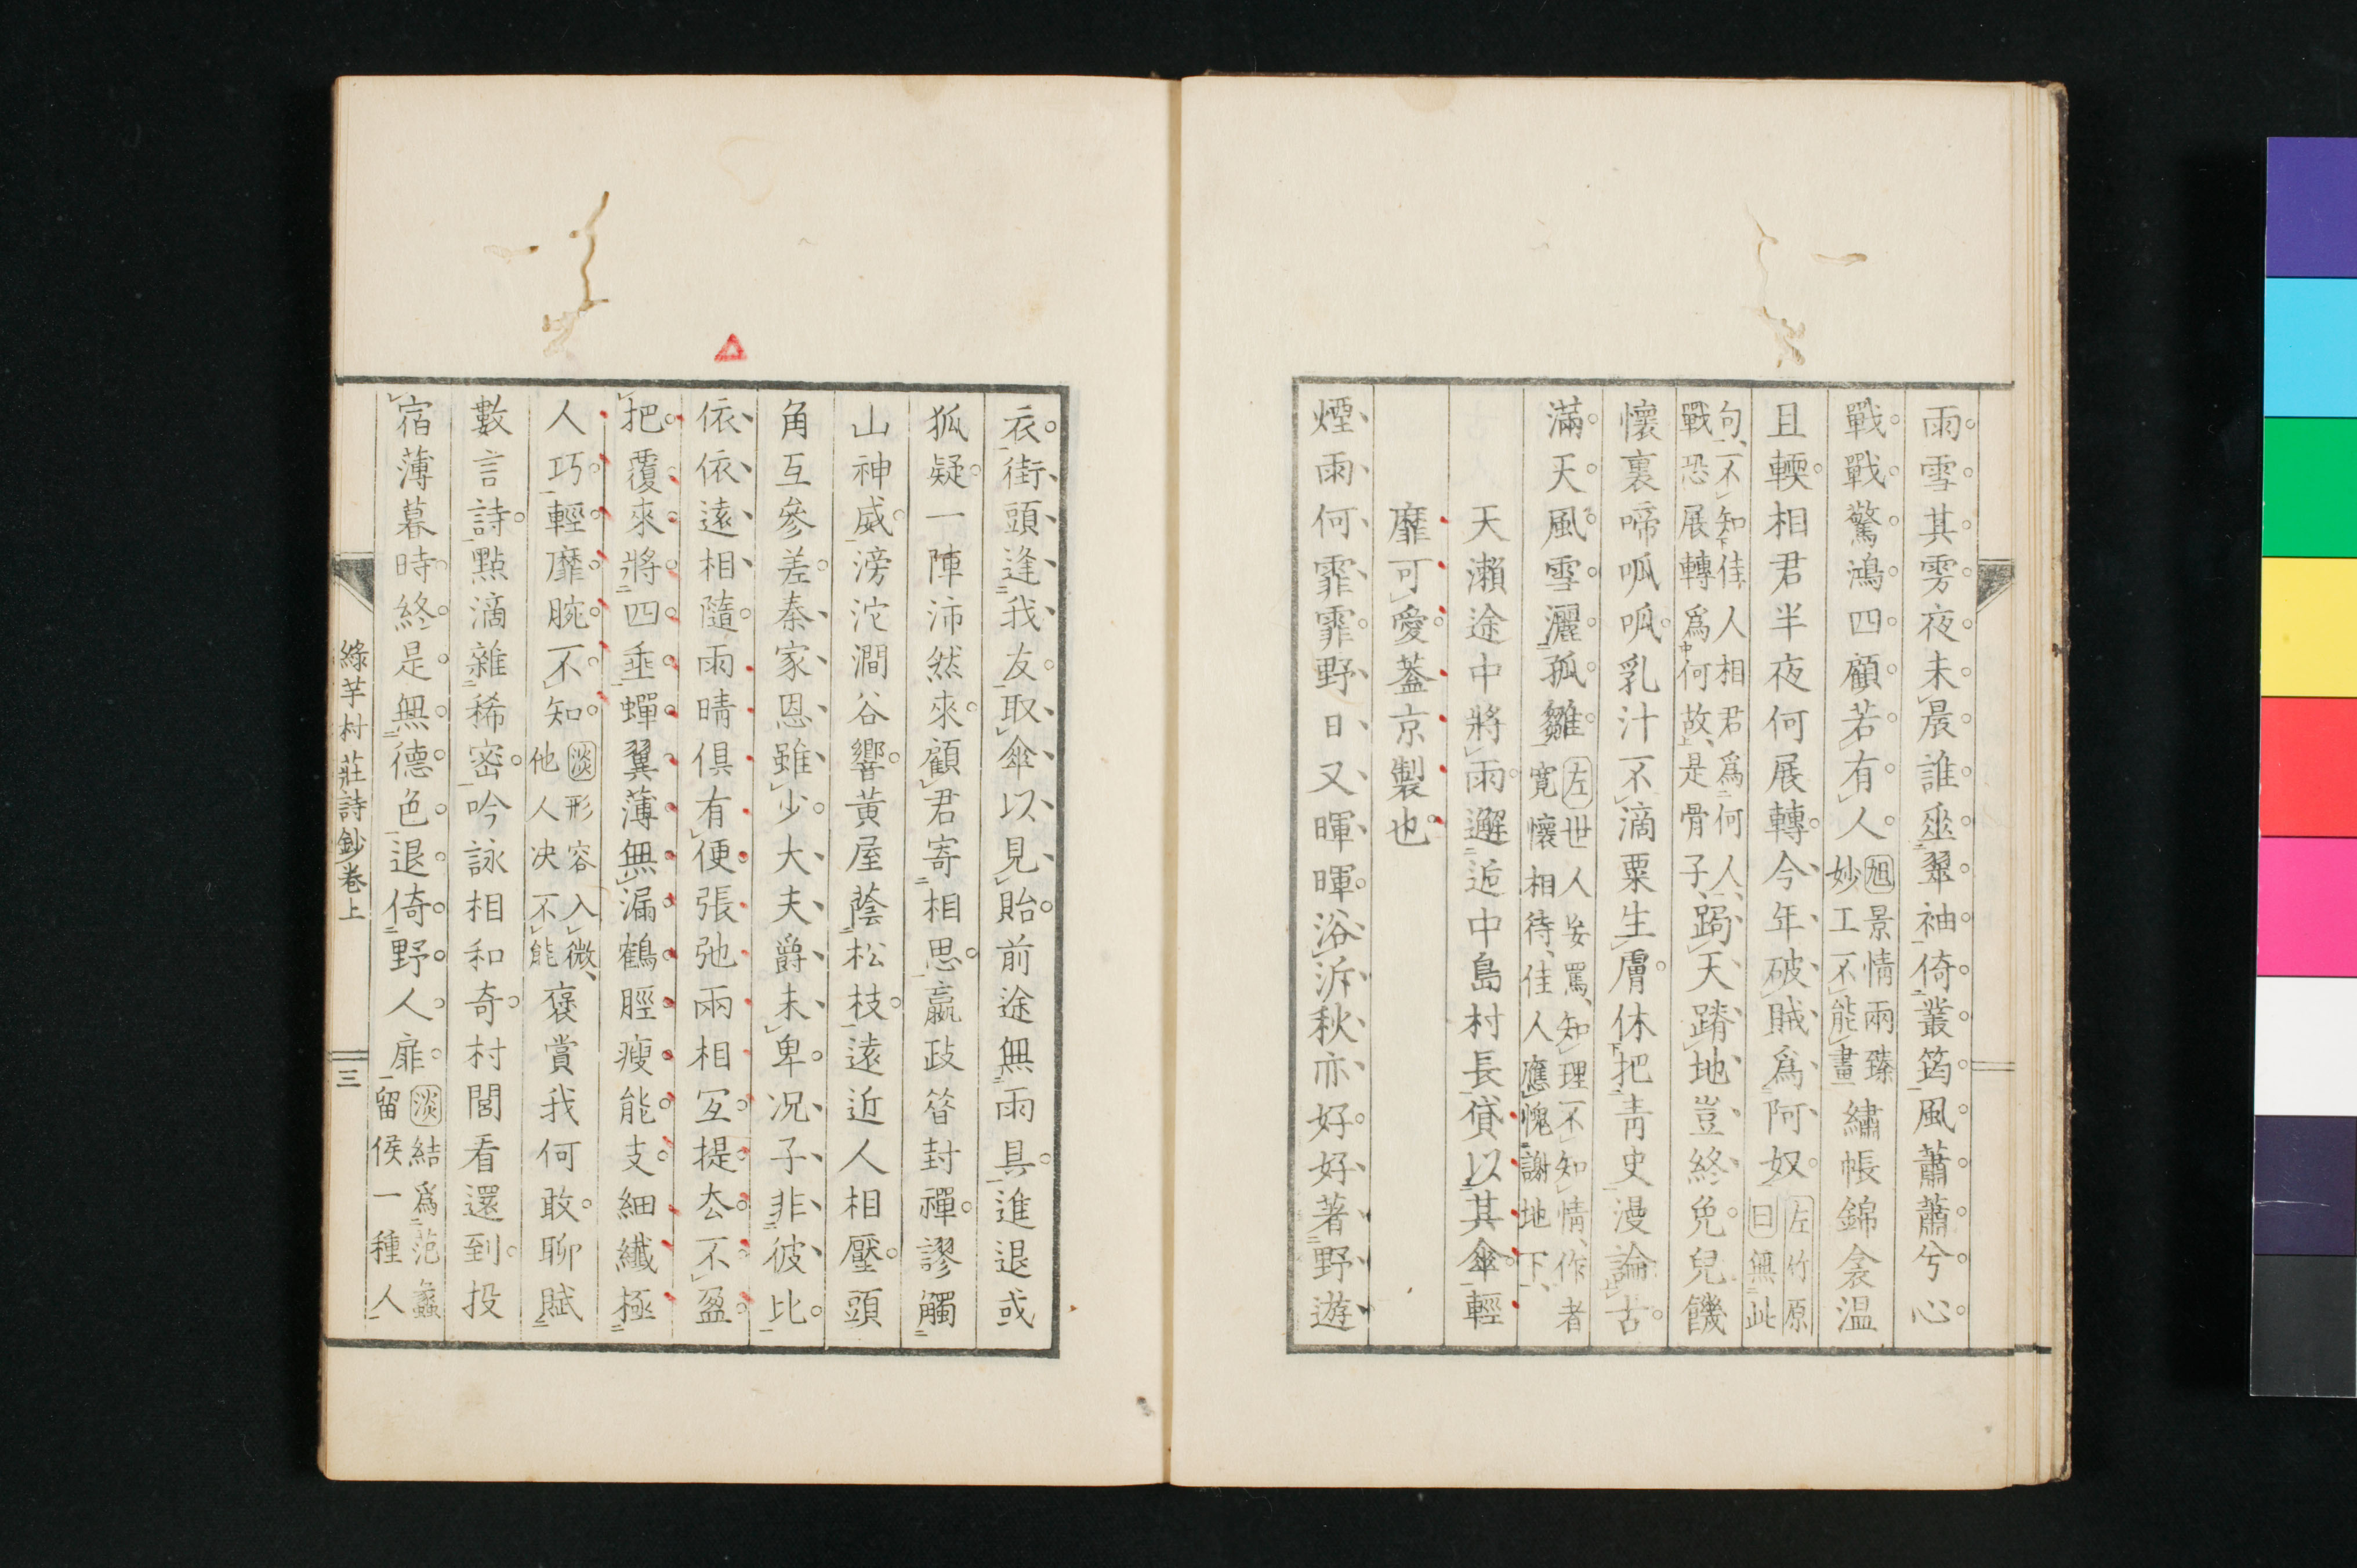 雨雪其雱夜未晨誰坐翠袖倚叢筠風蕭蕭兮心
戰戰驚鴻四顧若有人旭景情兩臻妙工不能畫繡帳錦衾温
且輭相君半夜何展轉今年破賊爲阿奴左竹原曰無此
句不知佳人相君爲何人戰恐展轉爲何故是骨子跼天蹐地豈終免兒饑
懷裏啼呱呱乳汁不滴粟生膚休把靑史漫論古
滿天風雪灑孤雛左世人妄罵知理不知情作者寬懷相待佳人應愧謝地下
天瀨途中將雨邂逅中島村長貸以其傘輕
靡可愛蓋京製也
煙雨何霏霏野日又暉暉浴泝秋亦好好著野遊
衣街頭逢我友取傘以見貽前途無雨具進退或
狐疑一陣沛然來顧君寄相思嬴政昝封禪謬觸
山神威滂沱澗谷響黃屋蔭松枝遠近人相壓頭
角互參差秦家恩雖少大夫爵未卑况子非彼比
依依遠相隨雨晴俱有便張弛兩相宜提去不盈
把覆來將四垂蟬翼薄無漏鶴脛瘦能支細纖極
人巧輕靡腕不知淡形容入微他人决不能褒賞我何敢聊賦
數言詩點滴雜稀密吟詠相和奇村閭看還到投
宿薄暮時終是無德色退倚野人扉淡結爲范蠡留侯一種人
綠芋村莊詩鈔卷上
三